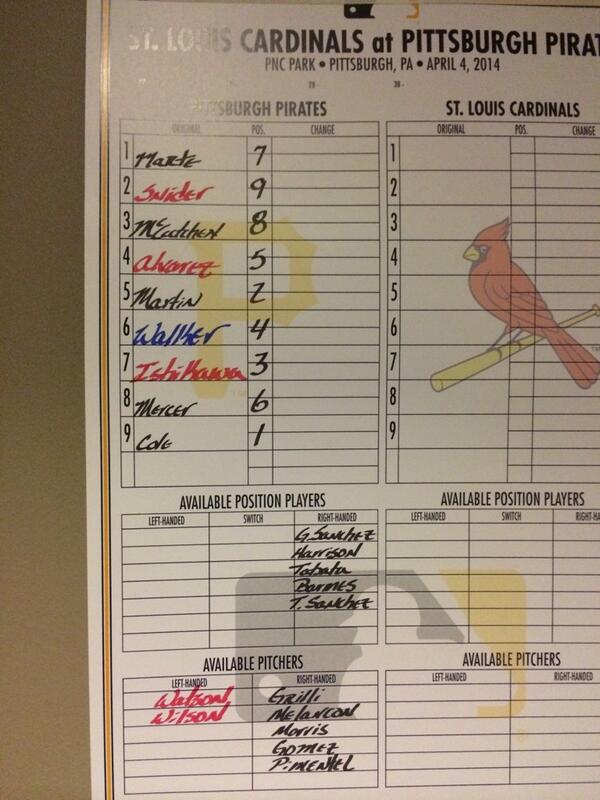 ST. LOUIS CARDINALS at PITTSBURGH PIRAT
PNC PARK • PITTSBURGH, PA • APRIL 4, 2014
PITTSBURGH PIRATES
ORIGINAL POS. CHANGE
1 Marte 7
2 Snider 9
3 McCutchen 8
4 Alvarez 5
5 Martin 2
6 Walker 4
7 Ishikawa 3
8 Mercer 6
9 Cole 1
ST. LOUIS CARDINALS
ORIGINAL POS. CHANGE
1
2
3
4
5
6
7
8
9
AVAILABLE POSITION PLAYERS
LEFT-HANDED SWITCH RIGHT-HANDED
G. Sanchez
Harrison
Tabata
Barmes
T. Sanchez
AVAILABLE POSITION PLAYERS
LEFT-HANDED SWITCH RIGHT-HA
AVAILABLE PITCHERS
LEFT-HANDED RIGHT-HANDED
Watson Grilli
Wilson Melancon
Morris
Gomez
Pimentel
AVAILABLE PITCHERS
LEFT-HANDED RIGHT-HAND